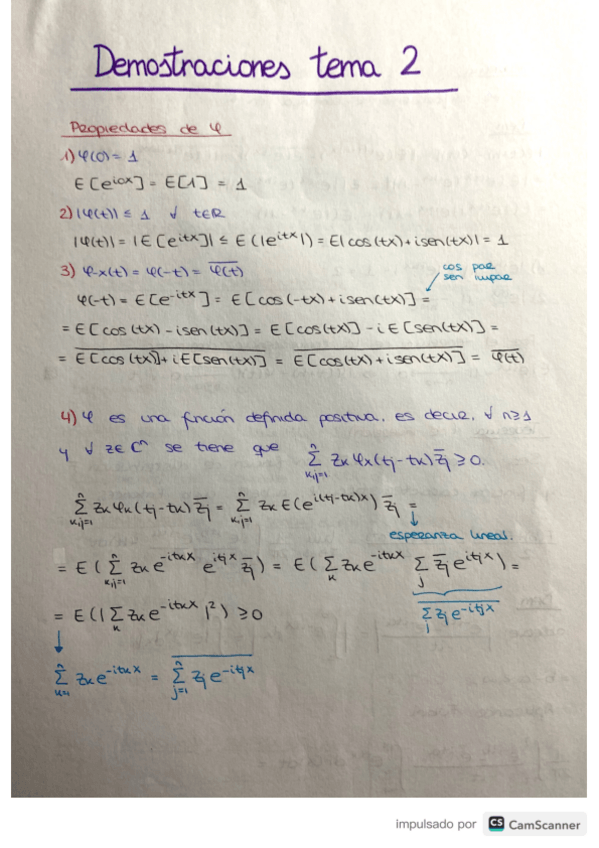 Demostraciones tema 2
Propiedades de φ
1) φ(0) = 1
E[e^{i0x}] = E[1] = 1
2) |φ(t)| ≤ 1 ∀ t∈R
|φ(t)| = |E[e^{itx}]| ≤ E(|e^{itx}|) = E|cos(tx)+isen(tx)| = 1
3) φ-x(t) = φ(-t) = \overline{φ(t)}
cos par
sen impar
φ(-t) = E[e^{-itx}] = E[cos(-tx)+isen(tx)] =
= E[cos(tx) - isen(tx)] = E[cos(tx)] - iE[sen(tx)] =
= \overline{E[cos(tx)]+iE[sen(tx)]} = \overline{E[cos(tx)+isen(tx)]} = \overline{φ(t)}
4) φ es una función definida positiva, es decir, ∀ n≥1
y ∀ z∈C^n se tiene que \sum_{k,j=1}^{n} z_k φ_x(t_j-t_k) \overline{z_j} ≥ 0.
\sum_{k,j=1}^{n} z_k φ_x(t_j-t_k) \overline{z_j} = \sum_{k,j=1}^{n} z_k E(e^{i(t_j-t_k)x}) \overline{z_j} =
↓
esperanza lineal.
= E(\sum_{k,j=1}^{n} z_k e^{-it_kx} e^{it_jx} \overline{z_j}) = E(\sum_{k} z_k e^{-it_kx} \sum_{j} \overline{z_j} e^{it_jx}) =
\overline{\sum_{j} z_j e^{-it_jx}}
= E(|\sum_{k} z_k e^{-it_kx}|^2) ≥ 0
↓
\sum_{k=1}^{n} z_k e^{-it_kx} = \overline{\sum_{j=1}^{n} z_j e^{-it_jx}}
impulsado por CS CamScanner